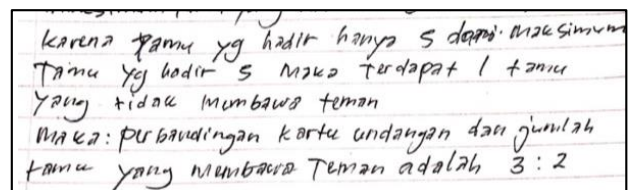 karena tamu yg hadir hanya 5 dari maksimum
Tamu yg hadir 5 Maka Terdapat 1 tamu
yang tidak membawa teman
Maka: perbandingan kartu undangan dan jumlah
tamu yang membawa Teman adalah 3:2